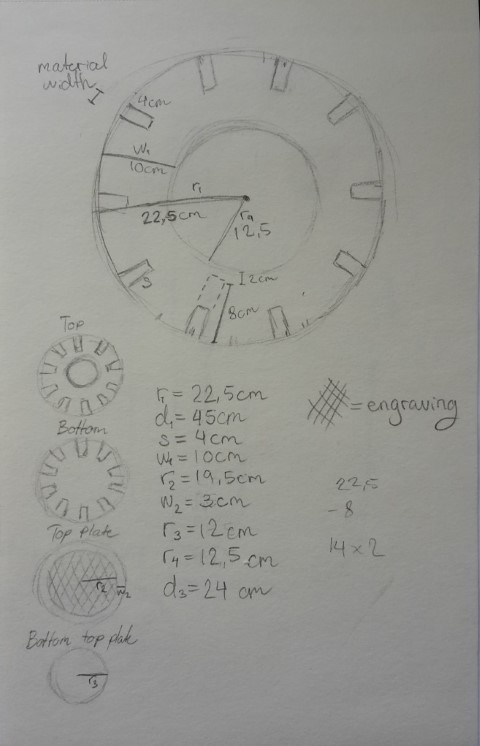 material
width
4cm
W₁
10cm
r₁
22,5cm
r₄
12,5
s
2cm
8cm
Top
Bottom
Top plate
r₂
w₂
Bottom top plate
r₃
r₁ = 22,5cm
d₁= 45cm
s = 4cm
w₁ = 10cm
r₂ = 19,5cm
w₂ = 3cm
r₃ = 12cm
r₄ = 12,5 cm
d₃ = 24 cm
= engraving
22,5
- 8
14 x 2